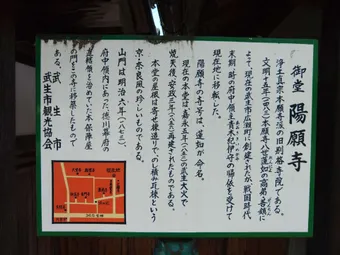 御堂 陽願寺
浄土真宗本願寺派の旧別格寺院である。
文明十五年(一四八三)本願寺八代蓮如の高弟善鎮に
よって、現在の武生市広瀬町に創建されたが、戦国時代
末期、時の府中領主青木紀伊守の勝依を受けて
現在地に移転した。
陽願寺の寺号は、蓮如が命名。
現在の本堂は嘉永五年(一八五二)の武生大火で
焼失後、安政三年(一八五六)再建されたものである。
本堂の屋根は寄せ棟造りで、むくり積み瓦棟という
京・奈良風の珍しいものである。
山門は明治六年(一八七三)、
府中領内にあった、徳川幕府の
直轄領を治めていた本保陣屋
の門をこの寺に移築したもので
ある。
武生市
武生市観光協会